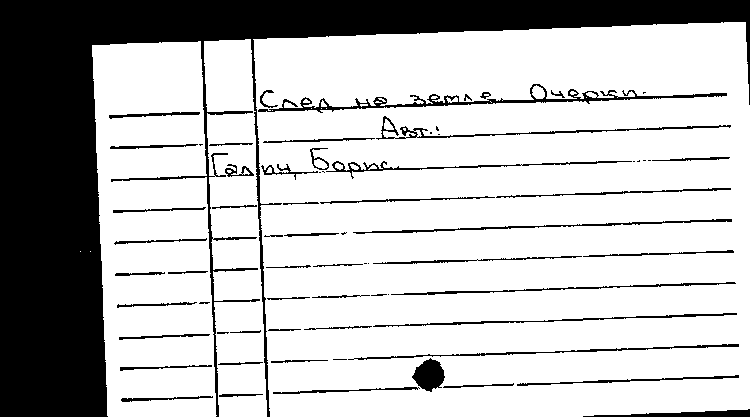 След на земле. Очерки.
Авт.:
Галин, Борис.